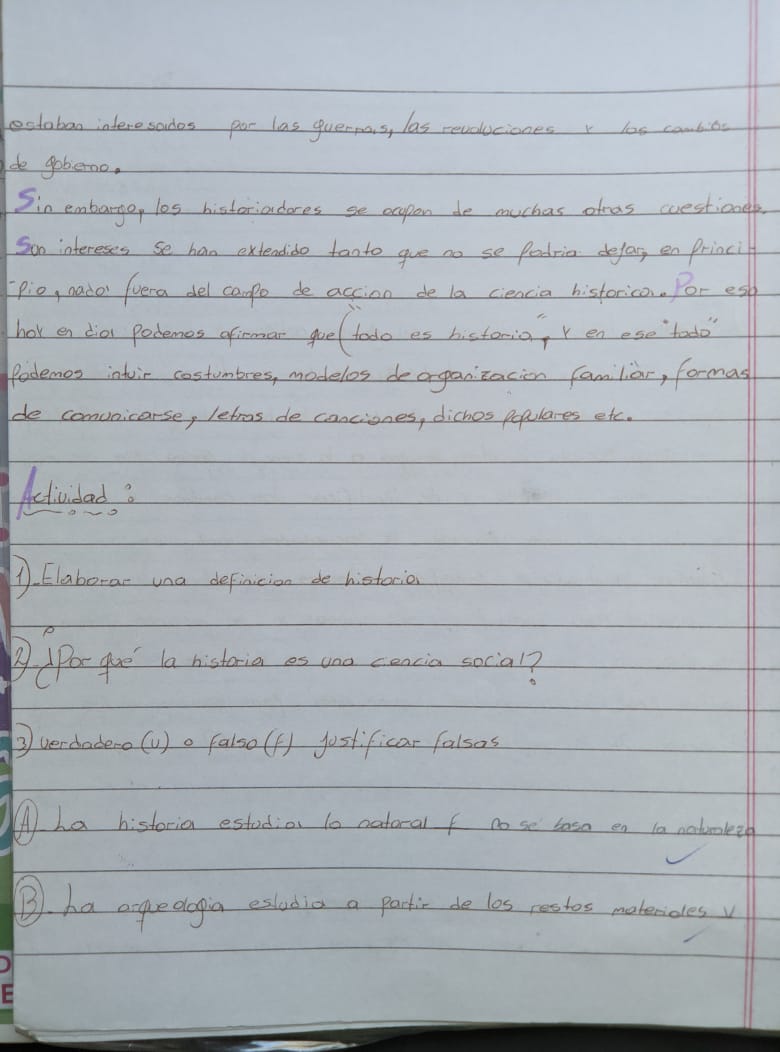 estaban interesados por las guerras, las revoluciones y los cambios
de gobierno.
Sin embargo, los historiadores se ocupan de muchas otras cuestiones.
Sun intereses se han extendido tanto que no se Podria dejar, en Princi
-pio, nada fuera del campo de accion de la ciencia historica. Por eso
hoy en dia Podemos afirmar que ("todo es historia", y en ese "todo"
Podemos intuir costumbres, modelos de organizacion familiar, formas
de comunicarse, letras de canciones, dichos Populares etc.
Actividad:
1)-Elaborar una definicion de historia
2)-¿Por qué la historia es una cencia social?
3) verdadero (v) o falso (f) justificar falsas
A)- La historia estudia lo natoral f no se basa en la naturaleza
B)- La arqueologia estudia a partir de los restos materiales v
D
E